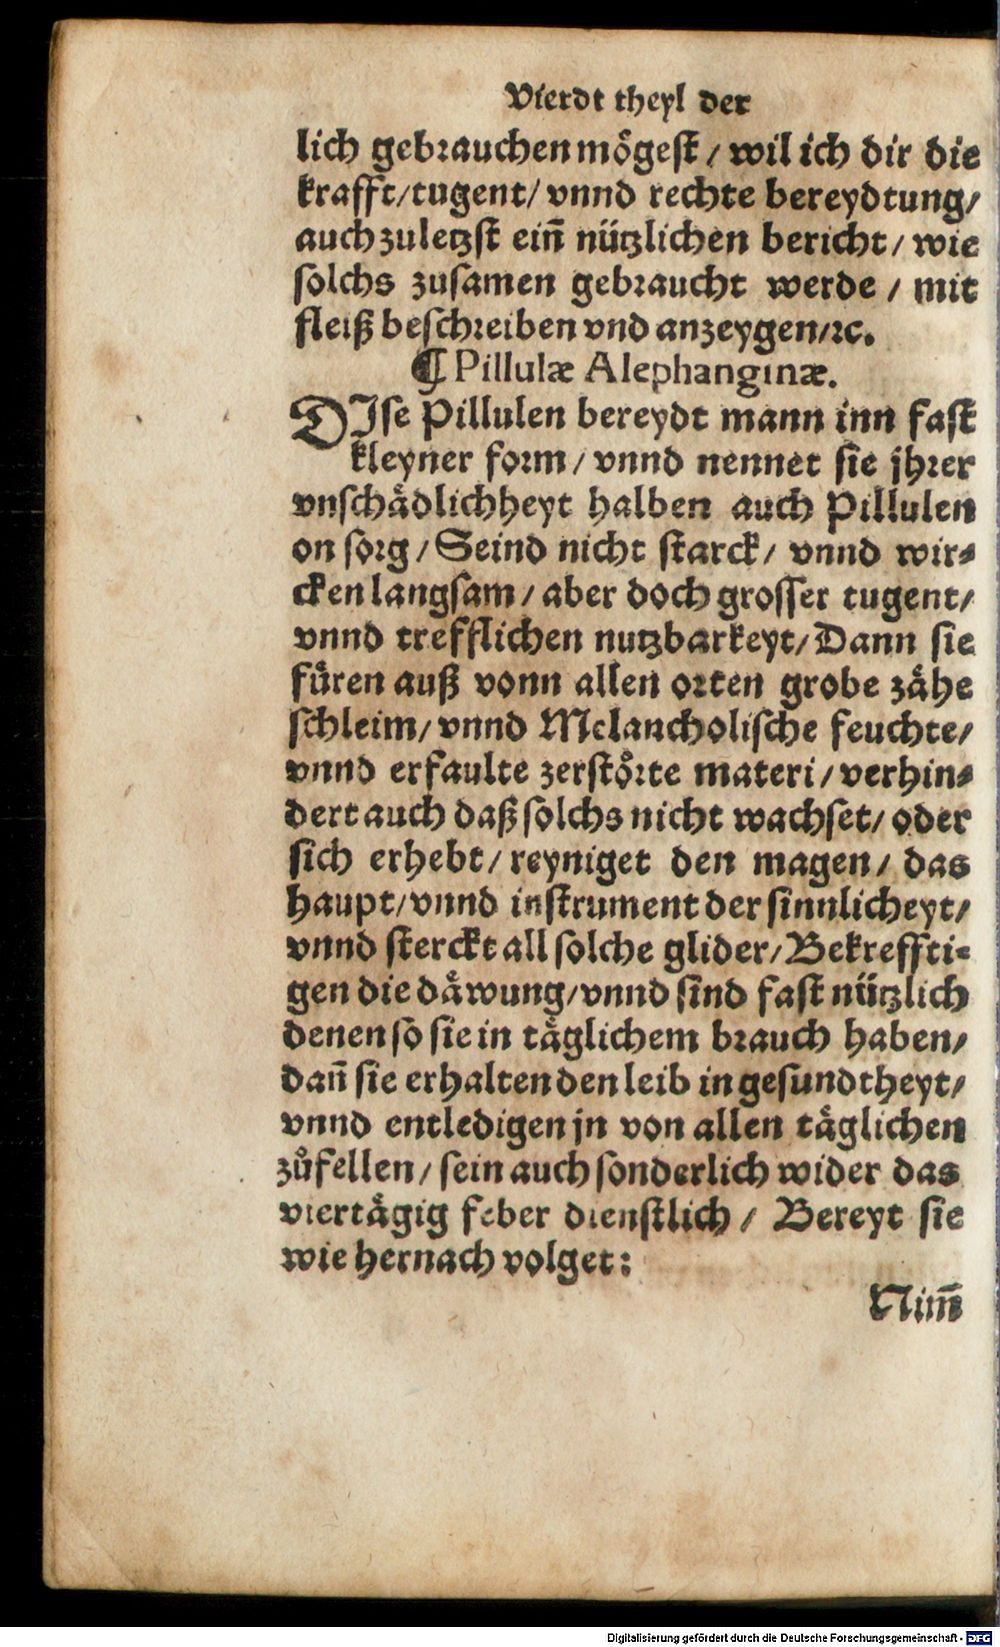 Vierdt theyl der
lich gebrauchen mögest / wil ich dir die
krafft / tugent / vnnd rechte bereydtung /
auch zuletzst eiñ nützlichen bericht / wie
solchs zusamen gebraucht werde / mit
fleiß beschreiben vnd anzeygen / ꝛc.
¶ Pillulæ Alephanginæ.
DIse Pillulen bereydt mann inn fast
kleyner form / vnnd nennet sie jhrer
vnschådlichheyt halben auch Pillulen
on sorg / Seind nicht starck / vnnd wir⸗
cken langsam / aber doch grosser tugent /
vnnd trefflichen nutzbarkeyt / Dann sie
fůren auß vonn allen orten grobe zåhe
schleim / vnnd Melancholische feuchte /
vnnd erfaulte zerstörte materi / verhin⸗
dert auch daß solchs nicht wachset / oder
sich erhebt / reyniget den magen / das
haupt / vnnd instrument der sinnlicheyt /
vnnd sterckt all solche glider / Bekreffti⸗
gen die dåwung / vnnd sind fast nützlich
denen so sie in tåglichem brauch haben /
dañ sie erhalten den leib in gesundtheyt /
vnnd entledigen jn von allen tåglichen
zůfellen / sein auch sonderlich wider das
viertågig feber dienstlich / Bereyt sie
wie hernach volget:
Nim̃
Digitalisierung gefördert durch die Deutsche Forschungsgemeinschaft - DFG